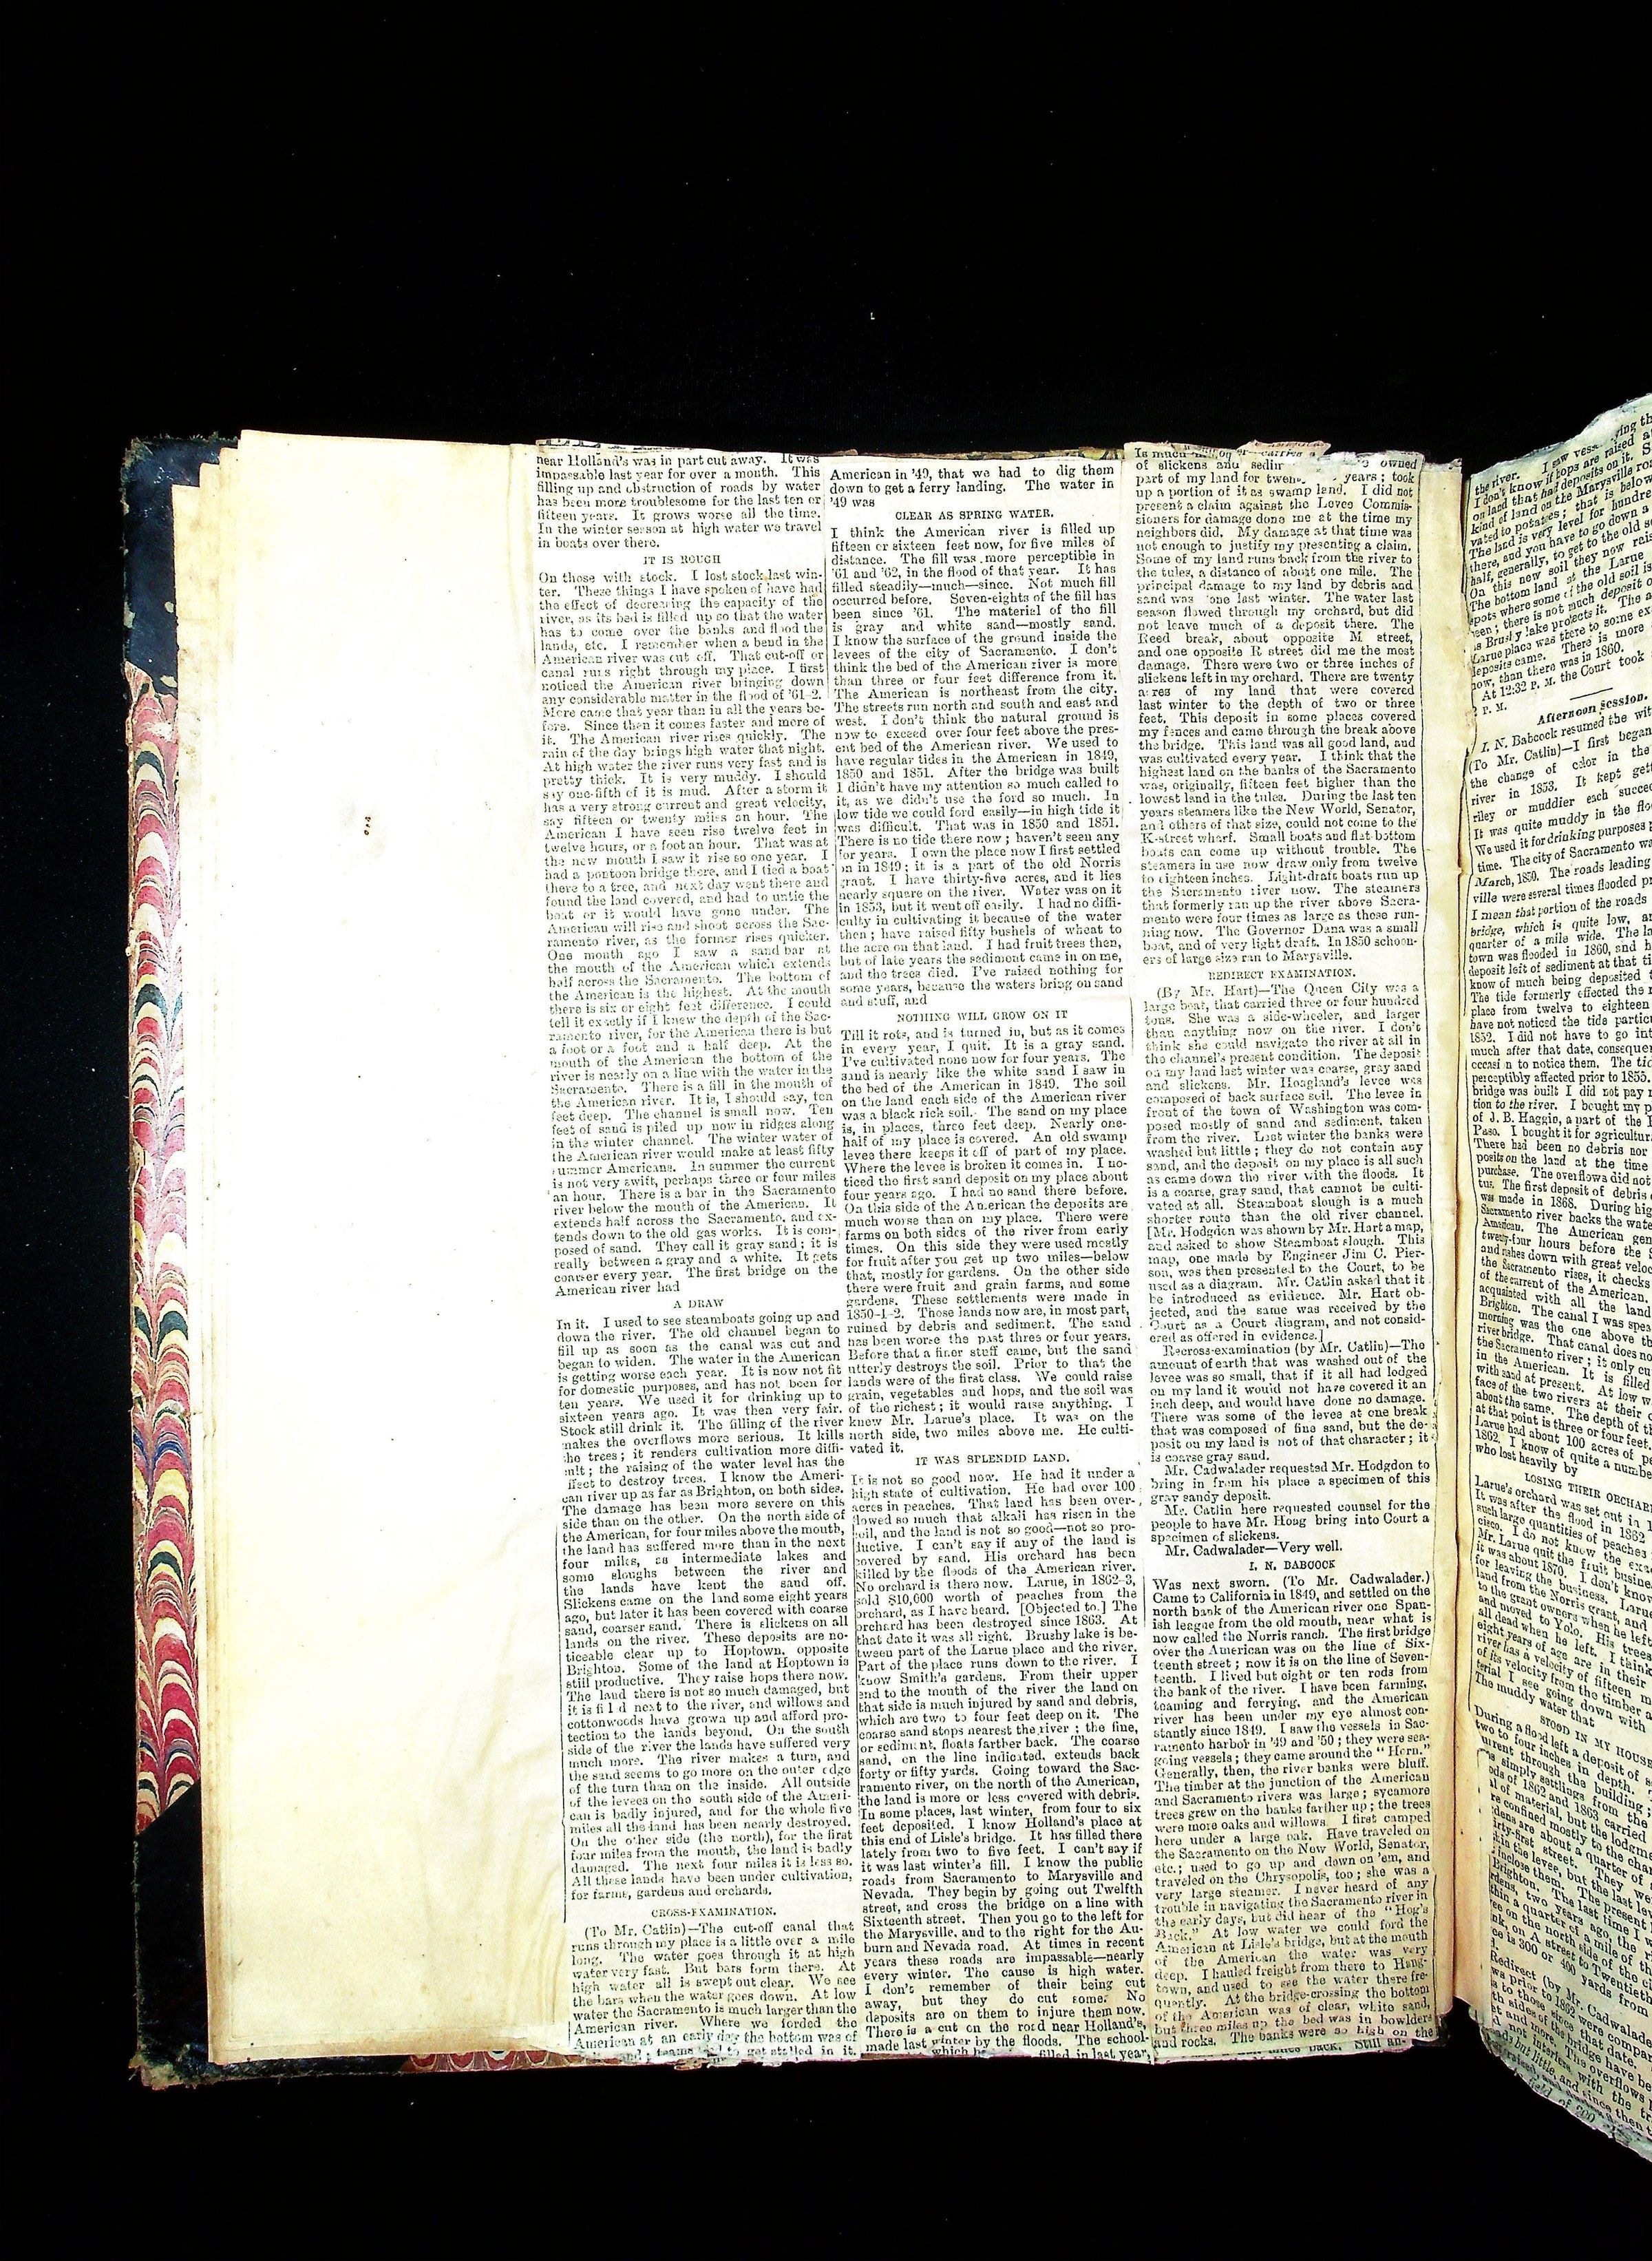 near Holland's was in part cut away. It was
impassable last year for over a month. This
filling up and obstruction of roads by water
has been more troublesome for the last ten or
fifteen years. It grows worse all the time.
In the winter season at high water we travel
in boats over there.
IT IS ROUGH
On those with stock. I lost stock last win-
ter. These things I have spoken of have had
the effect of decreasing the capacity of the
river, as its bed is filled up so that the water
has to come over the banks and flood the
lands, etc. I remember when a bend in the
American river was cut off. That cut-off or
canal runs right through my place. I first
noticed the American river bringing down
any considerable matter in the flood of '61-2.
More came that year than in all the years be-
fore. Since then it comes faster and more of
it. The American river rises quickly. The
rain of the day brings high water that night.
At high water the river runs very fast and is
pretty thick. It is very muddy. I should
say one-fifth of it is mud. After a storm it
has a very strong current and great velocity,
say fifteen or twenty miles an hour. The
American I have seen rise twelve feet in
twelve hours, or a foot an hour. That was at
the new mouth I saw it rise so one year. I
had a pontoon bridge there, and I tied a boat
there to a tree, and next day went there and
found the land covered, and had to untie the
boat or it would have gone under. The
American will rise and shoot across the Sac-
ramento river, as the former rises quicker.
One month ago I saw a sand bar at
the mouth of the American which extends
half across the Sacramento. The bottom of
the American is the highest. At the mouth
there is six or eight feet difference. I could
tell it exactly if I knew the depth of the Sac-
ramento river, for the American there is but
a foot or a foot and a half deep. At the
mouth of the American the bottom of the
river is nearly on a line with the water in the
Sacramento. There is a fill in the mouth of
the American river. It is, I should say, ten
feet deep. The channel is small now. Ten
feet of sand is piled up now in ridges along
in the winter channel. The winter water of
the American river would make at least fifty
summer Americans. In summer the current
is not very swift, perhaps three or four miles
an hour. There is a bar in the Sacramento
river below the mouth of the American. It
extends half across the Sacramento, and ex-
tends down to the old gas works. It is com-
posed of sand. They call it gray sand; it is
really between a gray and a white. It gets
coarser every year. The first bridge on the
American river had
A DRAW
In it. I used to see steamboats going up and
down the river. The old channel began to
fill up as soon as the canal was cut and
began to widen. The water in the American
is getting worse each year. It is now not fit
for domestic purposes, and has not been for
ten years. We used it for drinking up to
sixteen years ago. It was then very fair.
Stock still drink it. The filling of the river
makes the overflows more serious. It kills
the trees; it renders cultivation more diffi-
cult; the raising of the water level has the
effect to destroy trees. I know the Ameri-
can river up as far as Brighton, on both sides.
The damage has been more severe on this
side than on the other. On the north side of
the American, for four miles above the mouth,
the land has suffered more than in the next
four miles, as intermediate lakes and
some sloughs between the river and
the lands have kept the sand off.
Slickens came on the land some eight years
ago, but later it has been covered with coarse
sand, coarser sand. There is slickens on all
lands on the river. These deposits are no-
ticeable clear up to Hoptown, opposite
Brighton. Some of the land at Hoptown is
still productive. They raise hops there now.
The land there is not so much damaged, but
it is fil d next to the river, and willows and
cottonwoods have grown up and afford pro-
tection to the lands beyond. On the south
side of the river the lands have suffered very
much more. The river makes a turn, and
the sand seems to go more on the outer edge
of the turn than on the inside. All outside
of the levees on the south side of the Ameri-
can is badly injured, and for the whole five
miles all the land has been nearly destroyed.
On the other side (the north), for the first
four miles from the mouth, the land is badly
damaged. The next four miles it is less so.
All these lands have been under cultivation,
for farms, gardens and orchards.
CROSS-EXAMINATION.
(To Mr. Catlin)—The cut-off canal that
runs through my place is a little over a mile
long. The water goes through it at high
water very fast. But bars form there. At
high water all is swept out clear. We see
the bars when the water goes down. At low
water the Sacramento is much larger than the
American river. Where we forded the
American at an early day the bottom was of
and; teams had to get stalled in it.
American in '49, that we had to dig them
down to get a ferry landing. The water in
'49 was
CLEAR AS SPRING WATER.
I think the American river is filled up
fifteen or sixteen feet now, for five miles of
distance. The fill was more perceptible in
'61 and '62, in the flood of that year. It has
filled steadily—much—since. Not much fill
occurred before. Seven-eights of the fill has
been since '61. The material of the fill
is gray and white sand—mostly sand.
I know the surface of the ground inside the
levees of the city of Sacramento. I don't
think the bed of the American river is more
than three or four feet difference from it.
The American is northeast from the city.
The streets run north and south and east and
west. I don't think the natural ground is
now to exceed over four feet above the pres-
ent bed of the American river. We used to
have regular tides in the American in 1849,
1850 and 1851. After the bridge was built
I didn't have my attention so much called to
it, as we didn't use the ford so much. In
low tide we could ford easily—in high tide it
was difficult. That was in 1850 and 1851.
There is no tide there now; haven't seen any
for years. I own the place now I first settled
on in 1849; it is a part of the old Norris
grant. I have thirty-five acres, and it lies
nearly square on the river. Water was on it
in 1853, but it went off easily. I had no diffi-
culty in cultivating it because of the water
then; have raised fifty bushels of wheat to
the acre on that land. I had fruit trees then,
but of late years the sediment came in on me,
and the trees died. I've raised nothing for
some years, because the waters bring on sand
and stuff, and
NOTHING WILL GROW ON IT
Till it rots, and is turned in, but as it comes
in every year, I quit. It is a gray sand.
I've cultivated none now for four years. The
sand is nearly like the white sand I saw in
the bed of the American in 1849. The soil
on the land each side of the American river
was a black rich soil. The sand on my place
is, in places, three feet deep. Nearly one-
half of my place is covered. An old swamp
levee there keeps it off of part of my place.
Where the levee is broken it comes in. I no-
ticed the first sand deposit on my place about
four years ago. I had no sand there before.
On this side of the American the deposits are
much worse than on my place. There were
farms on both sides of the river from early
times. On this side they were used mostly
for fruit after you get up two miles—below
that, mostly for gardens. On the other side
there were fruit and grain farms, and some
gardens. These settlements were made in
1850-1-2. Those lands now are, in most part,
ruined by debris and sediment. The sand
has been worse the past three or four years.
Before that a finer stuff came, but the sand
utterly destroys the soil. Prior to that the
lands were of the first class. We could raise
grain, vegetables and hops, and the soil was
of the richest; it would raise anything. I
knew Mr. Larue's place. It was on the
north side, two miles above me. He culti-
vated it.
IT WAS SPLENDID LAND.
It is not so good now. He had it under a
high state of cultivation. He had over 100
acres in peaches. That land has been over-
flowed so much that alkali has risen in the
soil, and the land is not so good—not so pro-
ductive. I can't say if any of the land is
covered by sand. His orchard has been
killed by the floods of the American river.
No orchard is there now. Larue, in 1862-3,
sold $10,000 worth of peaches from the
orchard, as I have heard. [Objected to.] The
orchard has been destroyed since 1863. At
that date it was all right. Brushy lake is be-
tween part of the Larue place and the river.
Part of the place runs down to the river. I
know Smith's gardens. From their upper
end to the mouth of the river the land on
that side is much injured by sand and debris,
which are two to four feet deep on it. The
coarse sand stops nearest the river; the fine,
or sediment, floats farther back. The coarse
sand, on the line indicated, extends back
forty or fifty yards. Going toward the Sac-
ramento river, on the north of the American,
the land is more or less covered with debris.
In some places, last winter, from four to six
feet deposited. I know Holland's place at
this end of Lisle's bridge. It has filled there
lately from two to five feet. I can't say if
it was last winter's fill. I know the public
roads from Sacramento to Marysville and
Nevada. They begin by going out Twelfth
street, and cross the bridge on a line with
Sixteenth street. Then you go to the left for
the Marysville, and to the right for the Au-
burn and Nevada road. At times in recent
years these roads are impassable—nearly
every winter. The cause is high water.
I don't remember of their being cut
away, but they do cut some. No
deposits are on them to injure them now.
There is a cut on the road near Holland's,
made last winter by the floods. The school-
which filled in last year,
is much
of slickens and owned
part of my land for years; took
up a portion of it as swamp land. I did not
present a claim against the Levee Commis-
sioners for damage done me at the time my
neighbors did. My damage at that time was
not enough to justify my presenting a claim.
Some of my land runs back from the river to
the tules, a distance of about one mile. The
principal damage to my land by debris and
sand was done last winter. The water last
season flowed through my orchard, but did
not leave much of a deposit there. The
Reed break, about opposite M street,
and one opposite R street did me the most
damage. There were two or three inches of
slickens left in my orchard. There are twenty
acres of my land that were covered
last winter to the depth of two or three
feet. This deposit in some places covered
my fences and came through the break above
the bridge. This land was all good land, and
was cultivated every year. I think that the
highest land on the banks of the Sacramento
was, originally, fifteen feet higher than the
lowest land in the tules. During the last ten
years steamers like the New World, Senator,
and others of that size, could not come to the
K-street wharf. Small boats and flat-bottom
boats can come up without trouble. The
steamers in use now draw only from twelve
to eighteen inches. Light-draft boats run up
the Sacramento river now. The steamers
that formerly ran up the river above Sacra-
mento were four times as large as those run-
ning now. The Governor Dana was a small
boat, and of very light draft. In 1850 schoon-
ers of large size ran to Marysville.
REDIRECT EXAMINATION.
(By Mr. Hart)—The Queen City was a
large boat, that carried three or four hundred
tons. She was a side-wheeler, and larger
than anything now on the river. I don't
think she could navigate the river at all in
the channel's present condition. The deposit
on my land last winter was coarse, gray sand
and slickens. Mr. Hoagland's levee was
composed of back surface soil. The levee in
front of the town of Washington was com-
posed mostly of sand and sediment, taken
from the river. Last winter the banks were
washed but little; they do not contain any
sand, and the deposit on my place is all such
as came down the river with the floods. It
is a coarse, gray sand, that cannot be culti-
vated at all. Steamboat slough is a much
shorter route than the old river channel.
[Mr. Hodgdon was shown by Mr. Hart a map,
and asked to show Steamboat slough. This
map, one made by Engineer Jim C. Pier-
son, was then presented to the Court, to be
used as a diagram. Mr. Catlin asked that it
be introduced as evidence. Mr. Hart ob-
jected, and the same was received by the
Court as a Court diagram, and not consid-
ered as offered in evidence.]
Recross-examination (by Mr. Catlin)—The
amount of earth that was washed out of the
levee was so small, that if it all had lodged
on my land it would not have covered it an
inch deep, and would have done no damage.
There was some of the levee at one break
that was composed of fine sand, but the de-
posit on my land is not of that character; it
is coarse gray sand.
Mr. Cadwalader requested Mr. Hodgdon to
bring in from his place a specimen of this
gray sandy deposit.
Mr. Catlin here requested counsel for the
people to have Mr. Hoag bring into Court a
specimen of slickens.
Mr. Cadwalader—Very well.
I. N. BABCOCK
Was next sworn. (To Mr. Cadwalader.)
Came to California in 1849, and settled on the
north bank of the American river one Span-
ish league from the old mouth, near what is
now called the Norris ranch. The first bridge
over the American was on the line of Six-
teenth street; now it is on the line of Seven-
teenth. I lived but eight or ten rods from
the bank of the river. I have been farming,
teaming and ferrying, and the American
river has been under my eye almost con-
stantly since 1849. I saw the vessels in Sac-
ramento harbor in '49 and '50; they were sea-
going vessels; they came around the "Horn."
Generally, then, the river banks were bluff.
The timber at the junction of the American
and Sacramento rivers was large; sycamore
trees grew on the banks farther up; the trees
were more oaks and willows. I first camped
here under a large oak. Have traveled on
the Sacramento on the New World, Senator,
etc.; used to go up and down on 'em, and
traveled on the Chrysopolis, too; she was a
very large steamer. I never heard of any
trouble in navigating the Sacramento river in
the early days, but did hear of the "Hog's
Back." At low water we could ford the
American at Lisle's bridge, but at the mouth
of the American the water was very
deep. I hauled freight from there to Hang-
town, and used to see the water there fre-
quently. At the bridge-crossing the bottom
of the American was of clear, white sand,
but three miles up the bed was in bowlders
and rocks. The banks were so high on the
the river. I saw
I don't know if hops are raised
on land that has deposits on it.
kind of land on the Marysville
vated to potatoes; that is below
The land is very level for hundre
there, and you have to go down a
half, generally, to get to the old
On this new soil they now
The bottom land at the Larue
spots where some of the old soil is
seen; there is not much deposit
as Brushy lake protects it. The
Larue place was there to some
deposits came. There is more
now, than there was in 1860.
At 12:32 P. M. the Court took
2 P. M.
Afternoon Session.
I. N. Babcock resumed the
(To Mr. Catlin)—I first began
the change of color in the
river in 1853. It kept
riley or muddier each
It was quite muddy in the
We used it for drinking purposes
time. The city of Sacramento
March, 1850. The roads leading
ville were several times flooded
I mean that portion of the roads
bridge, which is quite low,
quarter of a mile wide. The
town was flooded in 1860, and
deposit left of sediment at that
know of much being deposited
The tide formerly effected the
place from twelve to eighteen
have not noticed the tide
1852. I did not have to go
much after that date,
occasi n to notice them. The
perceptibly affected prior to 1855.
bridge was built I did not pay
tion to the river. I bought my
of J. B. Haggin, a part of the
Paso. I bought it for
There had been no debris nor
posits on the land at the time
purchase. The overflows did not
tus. The first deposit of debris
was made in 1868. During
Sacramento river backs the
American. The American
twenty-four hours before the
and rushes down with great
the Sacramento rises, it checks
of the current of the American.
acquainted with all the land
Brighton. The canal I was
morning was the one above
river bridge. That canal does
the Sacramento river; it only
in the American. It is filled
with sand at present. At low
face of the two rivers at their
about the same. The depth of
at that point is three or four feet.
Larue had about 100 acres of
1862. I know of quite a
who lost heavily by
LOSING THEIR
Larue's orchard was set out in
It was after the flood in 1862
such large quantities of peaches
cisco. I do not know the
Mr. Larue quit the fruit
it was about 1870. I don't know
for leaving the business.
land from the Norris grant, and
to the grant owners when he left
and moved to Yolo. His trees
all dead when he left. I think
eight years of age are in their
river has a velocity of fifteen
of its velocity from the timber
terial I see going down with
The muddy water that
STOOD IN MY
During a flood left a deposit of
two to four inches in depth.
current through the building;
simply settlings from the
of 1862 and 1863 carried
of material, but the
confined mostly to the
are about a quarter of
street. They
the levee, but the last
inclose them. The present
Brighton. The last time I
two years ago, the
a quarter of a mile of the
on the north side of the
on A street to Twentieth
is 300 or 400 yards from
Redirect (by Mr. Cadwalader
prior to 1862 were
to those since that date.
sides of the bridge have
and more. The overflows
not interfere with the
but little, and since then
field of 200